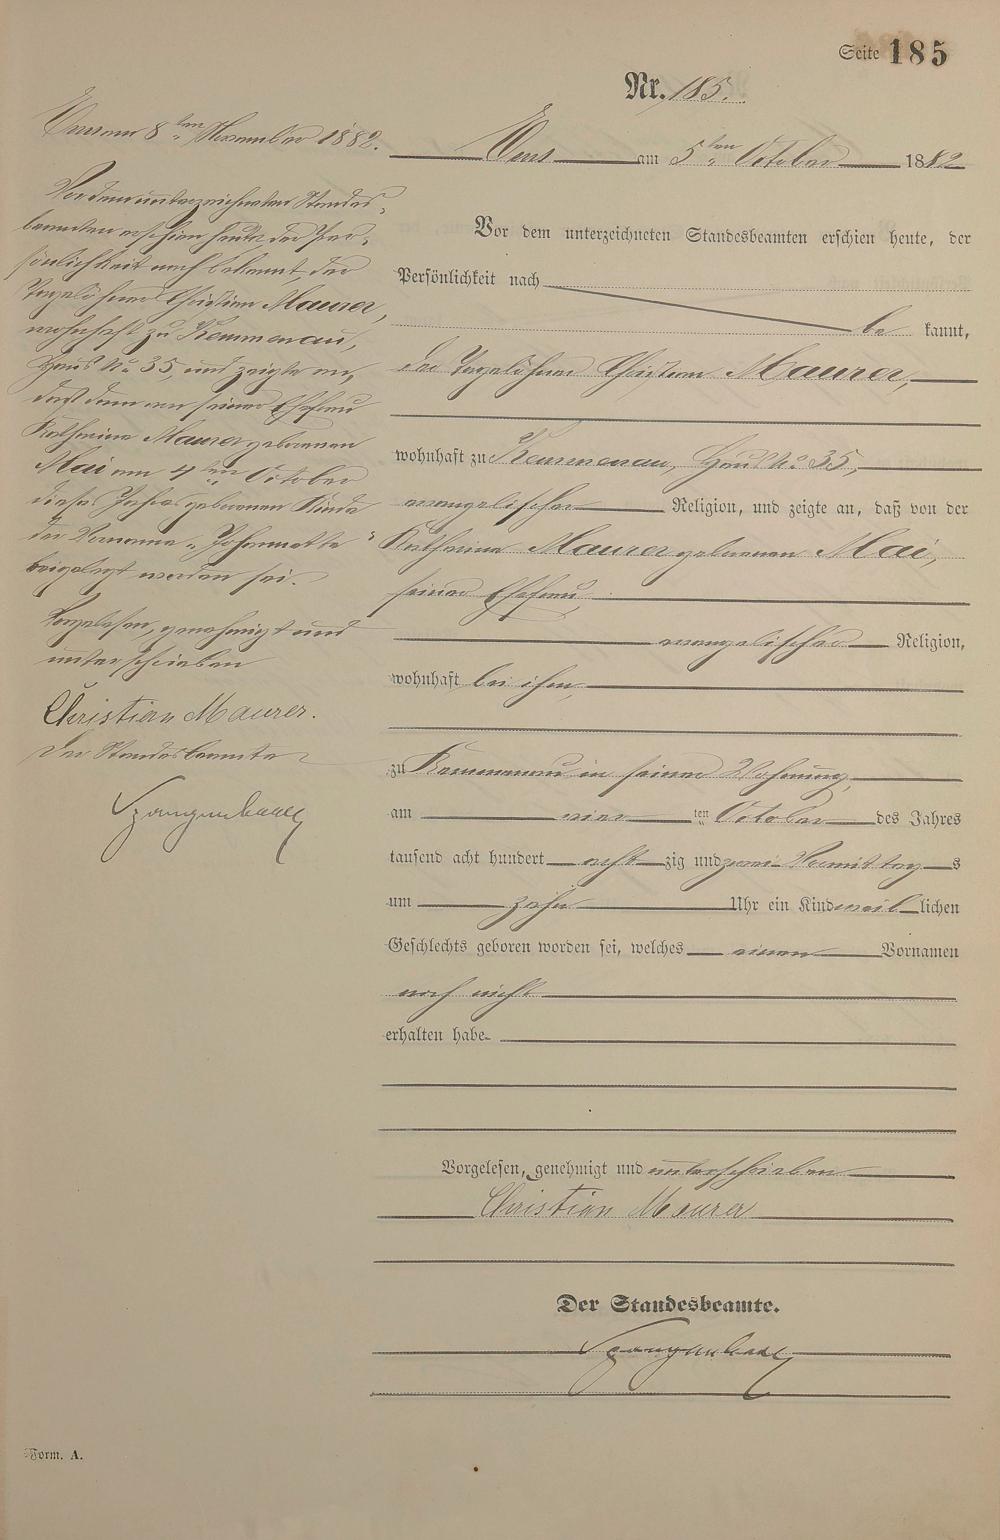 Seite 185
Nr. 185.
Ems am 5ten October 1882
Vor dem unterzeichneten Standesbeamten erschien heute, der
Persönlichkeit nach
be kannt,
der Tagelöhner Christian Maurer,
wohnhaft zu Kemmenau, Haus No 35,
evangelischer Religion, und zeigte an, daß von der
Katharina Maurer geborenen Mai,
seiner Ehefrau,
evangelischer Religion,
wohnhaft bei ihm,
zu Kemmenau in seiner Wohnung,
am vier ten October des Jahres
tausend acht hundert acht zig und zwei Vormittag s
um zehn Uhr ein Kind weib lichen
Geschlechts geboren worden sei, welches einen Vornamen
noch nicht
erhalten habe
Vorgelesen, genehmigt und unterschrieben
Christian Maurer
Der Standesbeamte.
Ems am 8ten November 1882.
Vor dem unterzeichneten Standes-
beamten erschien heute, der Per-
sönlichkeit nach bekannt, der
Tagelöhner Christian Maurer,
wohnhaft zu Kemmenau,
Haus No 35, und zeigte an,
daß dem von seiner Ehefrau
Katharina Maurer geborenen
Mai am 4ten October
dieses Jahres geborenen Kinde
der Vorname „Johannette"
beigelegt worden sei.
Vorgelesen, genehmigt und
unterschrieben
Christian Maurer.
Der Standesbeamte
Form. A.